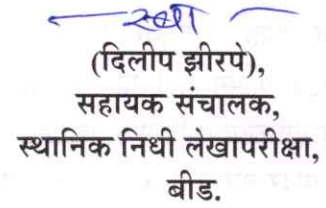 (दिलीप झीरपे),
सहायक संचालक,
स्थानिक निधी लेखापरीक्षा,
बीड.